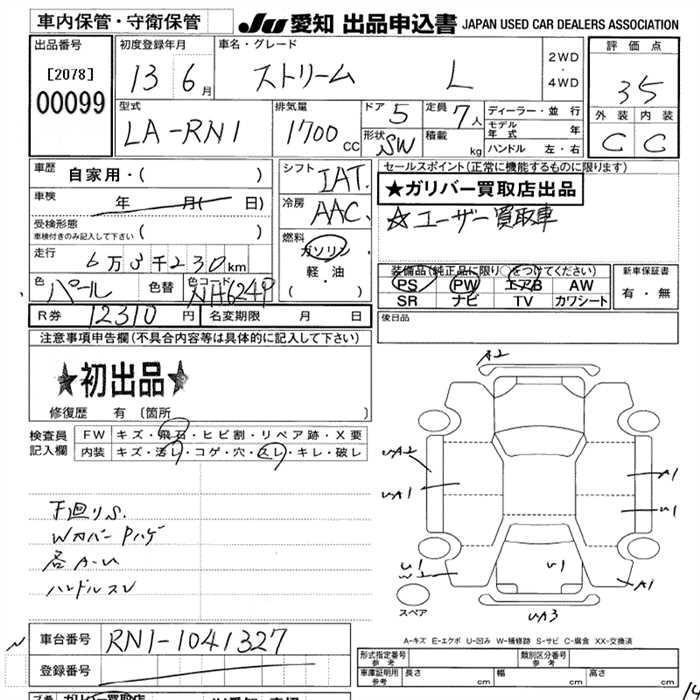 車内保管・守衛保管
JU 愛知 出品申込書 JAPAN USED CAR DEALERS ASSOCIATION
出品番号
[2078]
00099
初度登録年月
13 6月
車名・グレード
ストリーム L
2WD
・
4WD
評価点
35
外装 内装
C C
型式
LA-RN1
排気量
1700cc
ドア 5
形状 SW
定員 7人
積載 kg
ディーラー・並行
モデル年式 年
ハンドル 左・右
車歴 自家用・( )
車検 年 月( 日)
受検形態
車検付きのみ記入して下さい ( )
走行 6万3千230km
色 パール 色替 色コード NH624P
R券 12310円 名変期限 月 日
シフト IAT
冷房 AAC
燃料
ガソリン
軽・油
( )
セールスポイント(正常に機能するものに限ります)
★ガリバー買取店出品
☆ユーザー買取車
装備品(純正品に限り○をつけてください)
PS PW エアB AW
SR ナビ TV カワシート
新車保証書
有・無
後日品
注意事項申告欄(不具合内容等は具体的に記入して下さい)
★初出品★
修復歴 有 (箇所 )
検査員記入欄
FW キズ・飛石・ヒビ割・リペア跡・X要
内装 キズ・汚レ・コゲ・穴・スレ・キレ・破レ
下廻りS.
Wカバー Pハゲ
各A-U
ハンドルスレ
A2
UA2
UA1
A1
U1
U1
W1
U1
A1
UA3
スペア
A-キズ E-エクボ U-凹み W-補修跡 S-サビ C-腐食 XX-交換済
車台番号 RN1-1041327
登録番号
形式指定番号 参考
類別区分番号 参考
車庫証明用 参考 長さ cm 幅 cm 高さ cm
ガリバー買取店